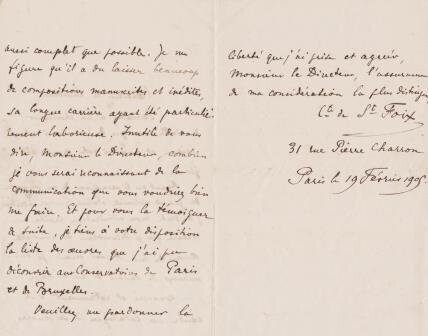 aussi complet que possible. Je me
figure qu'il a du laisser beaucoup
de compositions manuscrites et inédites,
sa longue carière ayant été particuliè-
rement laborieuse. Inutile de vous
dire, Monsieur le Directeur, combien
je vous serai reconnaissant de la
communication que vous voudriez bien
me faire. Et pour vous la témoigner
de suite, je tiens à votre disposition
la liste des œuvres que j'ai pu
découvrir aux Conservatoires de Paris
et de Bruxelles.
Veuillez me pardonner la
liberté que j'ai prise et agréer,
Monsieur le Directeur, l'assurance
de ma considération la plus distinguée
Cte de St Foix
31 rue Pierre Charron
Paris le 19 Février 1905.